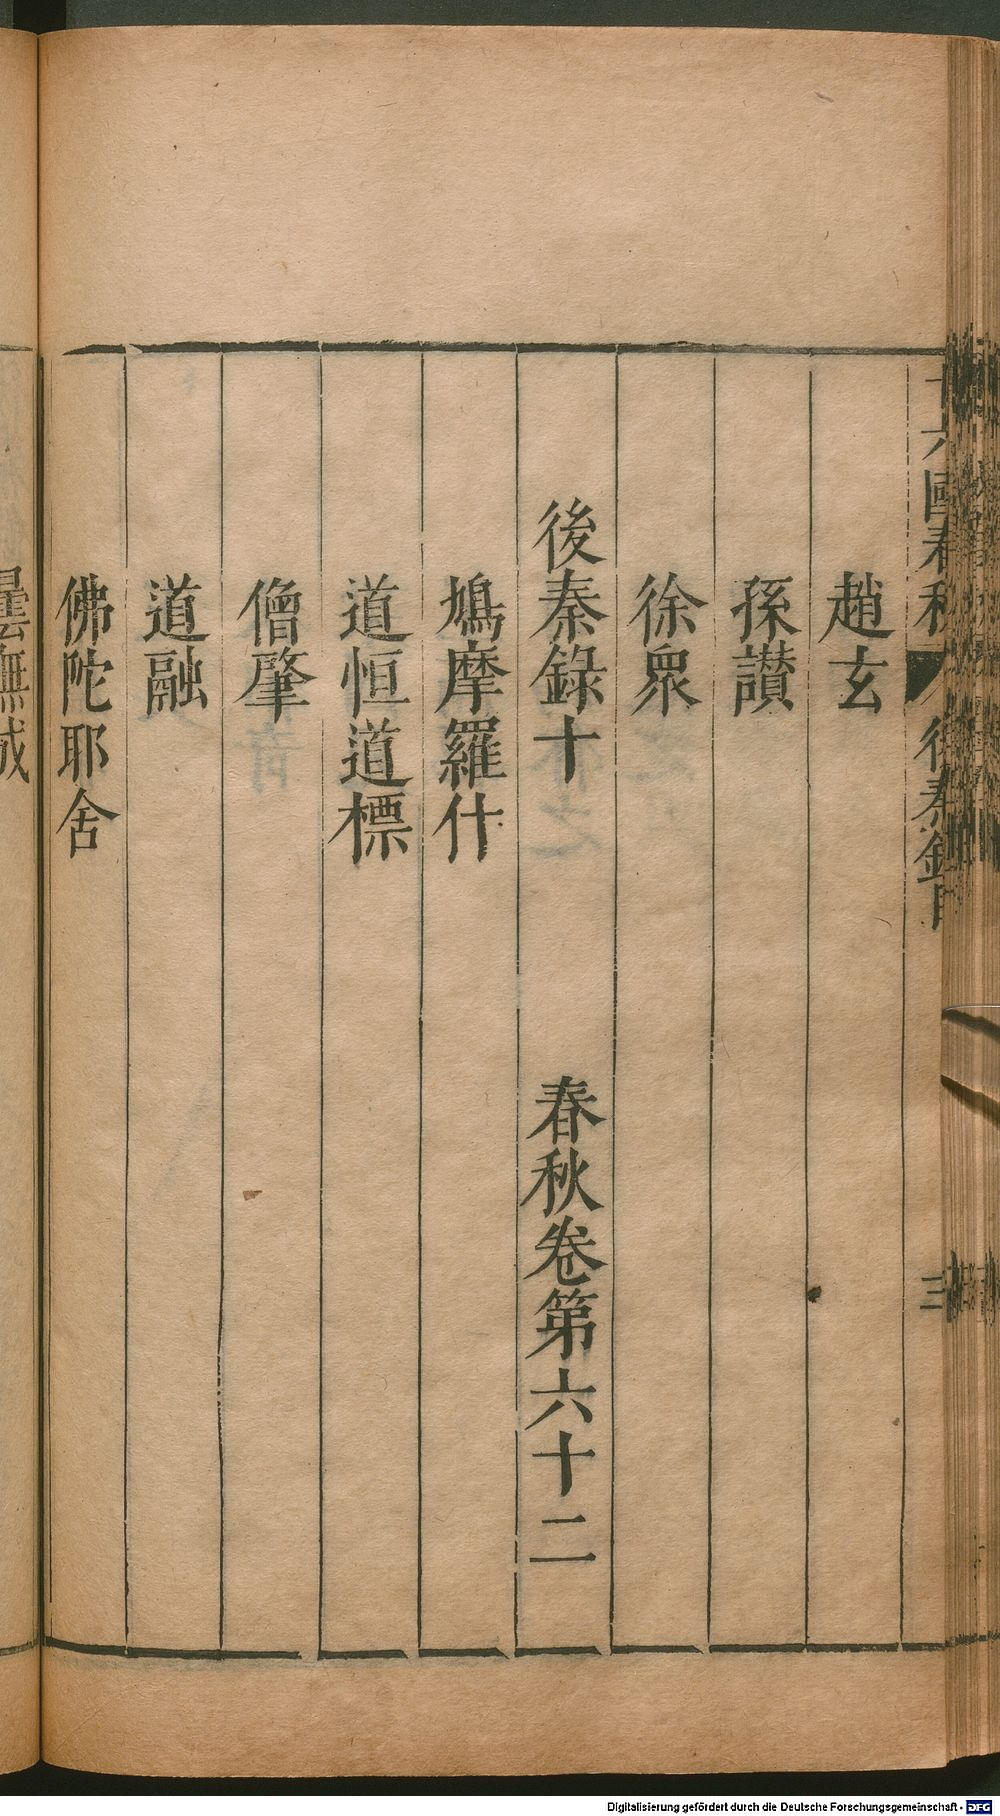 十六國春秋 後秦錄目 三
趙玄
孫讃
徐衆
後秦錄十 春秋卷第六十二
鳩摩羅什
道恒道標
僧肇
道融
佛陀耶舍
曇無成
Digitalisierung gefördert durch die Deutsche Forschungsgemeinschaft - DFG